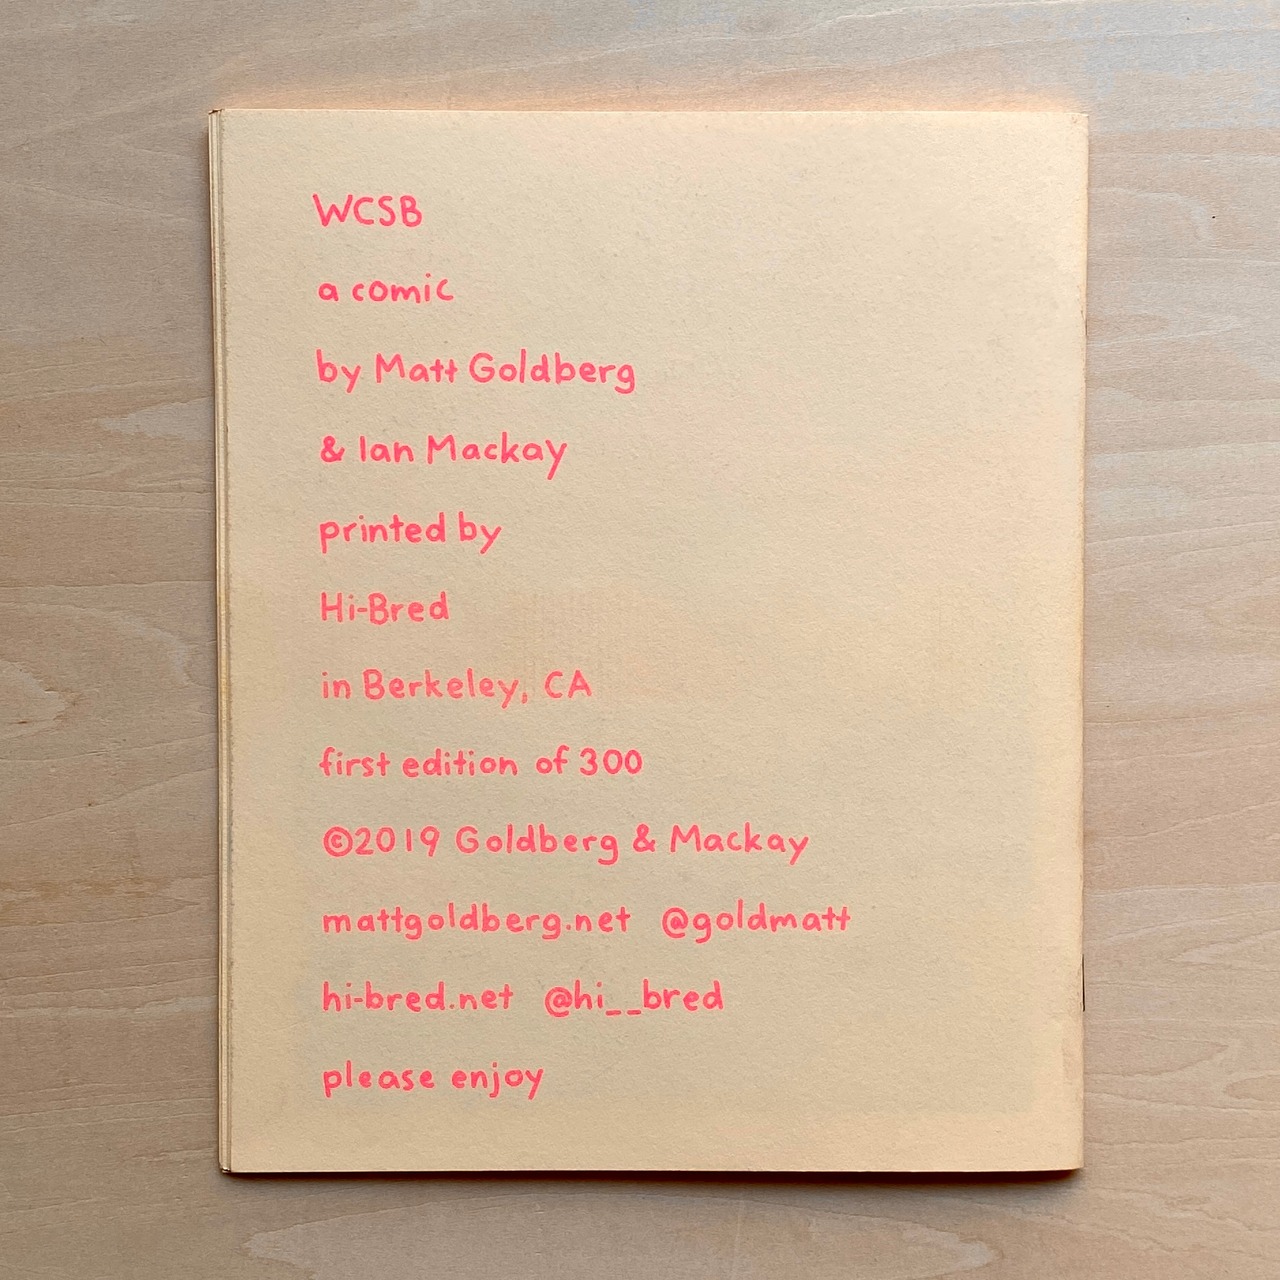 WCSB
a comic
by Matt Goldberg
& Ian Mackay
printed by
Hi-Bred
in Berkeley, CA
first edition of 300
©2019 Goldberg & Mackay
mattgoldberg.net @goldmatt
hi-bred.net @hi__bred
please enjoy